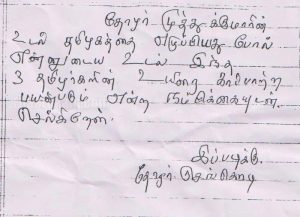 தோழர் முத்து குமாரின்
உடல் தமிழகத்தை எழுப்பியது போல்
என்னுடைய உடல் இந்த
3 தமிழர்களின் உயிரை காப்பாற்ற
பயன்படும் என்ற நம்பிக்கையுடன்
செல்கிறேன்.
இப்படிக்கு
தோழர் செங்கொடி